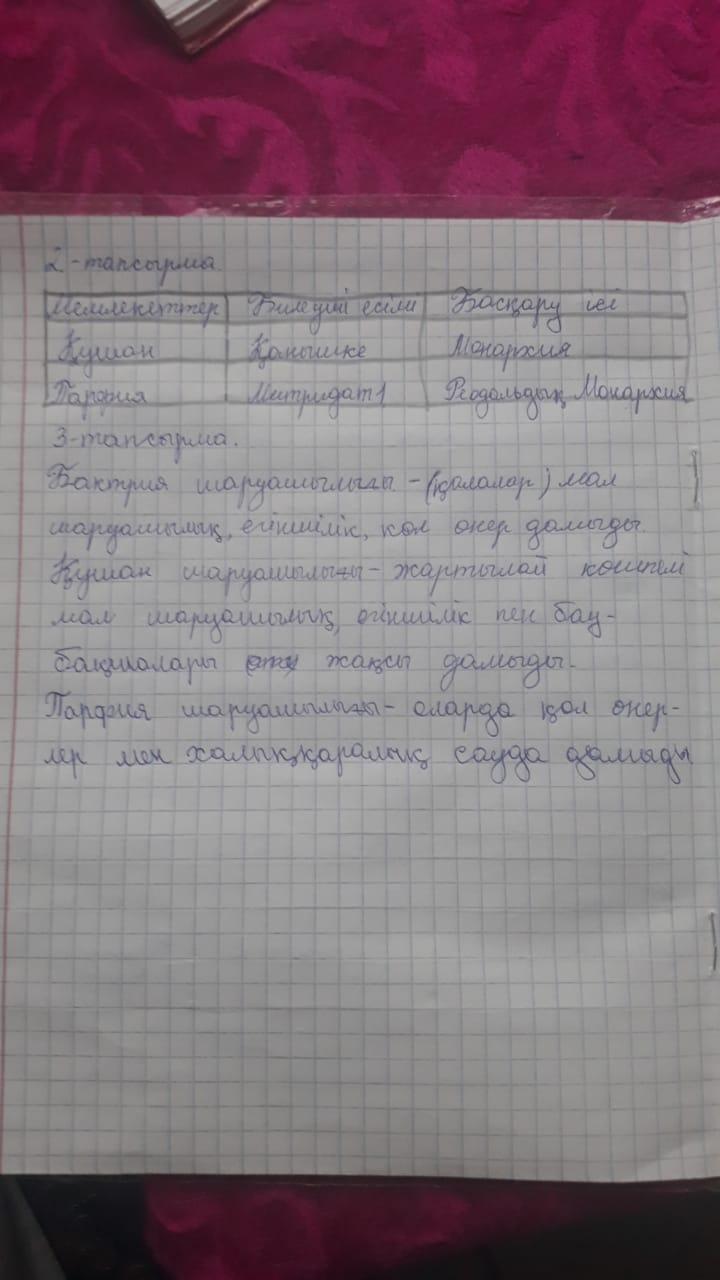 2-тапсырма.
Мемлекеттер Билеуші есімі Басқару ісі
Қушан Қанышке Монархия
Парфия Митридат 1 Феодольдық Монархия
3-тапсырма.
Бактрия шаруашылығы - (қалалар) мал
шаруашылық, егіншілік, қол өнер дамыды.
Қушан шаруашылығы - жартылай көшпелі
мал шаруашылық, егіншілік пен бау-
бақшалары жақсы дамыды.
Парфия шаруашылығы - оларда қол өнер-
лер мен халыққаралық сауда дамыды